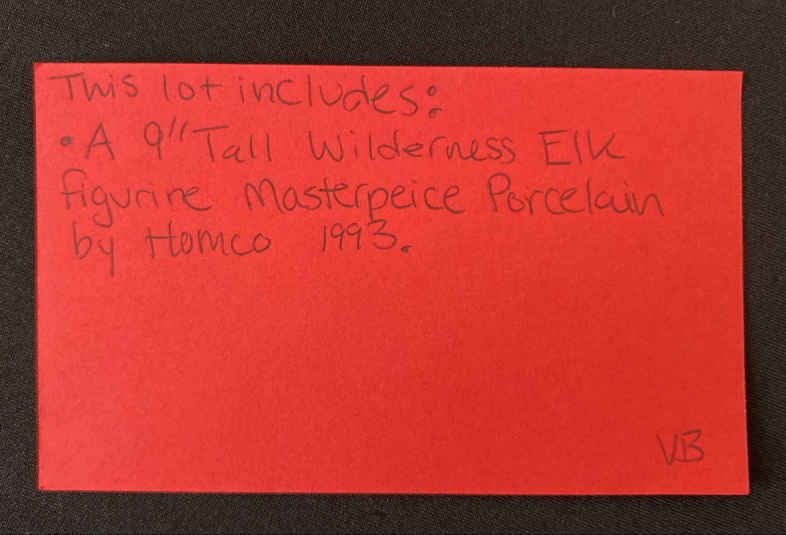 This lot includes:
• A 9" Tall Wilderness Elk
figurine Masterpeice Porcelain
by Homco 1993.
VB